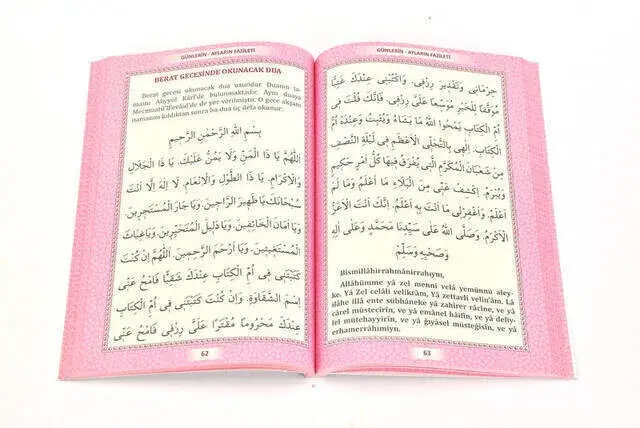 GÜNLERİN - AYLARIN FAZİLETİ
BERAT GECESİNDE OKUNACAK DUA
Berat gecesi okunacak dua uzundur. Duanın ta-
mamı Aliyyül Kârî'de bulunmaktadır. Aynı duaya
Mecmuatü'l'evrâd'de de yer verilmiştir. O gece akşam
namazını kıldıktan sonra bu dua üç defa okunur:
بِسْمِ اللّٰهِ الرَّحْمٰنِ الرَّحِيمِ
اَللّٰهُمَّ يَا ذَا الْمَنِّ وَلَا يَمُنُّ عَلَيْكَ. يَا ذَا الْجَلَالِ
وَالْاِكْرَامِ. يَا ذَا الطَّوْلِ وَالْاِنْعَامِ. لَا اِلٰهَ اِلَّا اَنْتَ
سُبْحَانَكَ يَا ظَهِيرَ الرَّاجِينَ. وَيَا جَارَ الْمُسْتَجِيرِينَ.
وَيَا اَمَانَ الْخَائِفِينَ. وَيَا دَلِيلَ الْمُتَحَيِّرِينَ. وَيَا غِيَاثَ
الْمُسْتَغِيثِينَ. وَيَا اَرْحَمَ الرَّاحِمِينَ. اَللّٰهُمَّ اِنْ كُنْتَ
كَتَبْتَنِى فِى اُمِّ الْكِتَابِ عِنْدَكَ شَقِيًّا فَامْحُ عَنِّى
اِسْمَ الشَّقَاوَةِ. وَاِنْ كُنْتَ كَتَبْتَنِى فِى اُمِّ الْكِتَابِ
عِنْدَكَ مَحْرُومًا مُقَتَّرًا عَلَىَّ رِزْقِى فَامْحُ عَنِّى
62
GÜNLERİN - AYLARIN FAZİLETİ
حِرْمَانِى. وَتَقْدِيرَ رِزْقِى. وَاكْتُبْنِى عِنْدَكَ غَنِيًّا
مُوَفَّقًا لِلْخَيْرِ مُوَسَّعًا عَلَىَّ رِزْقِى. فَاِنَّكَ قُلْتَ فِى
اُمِّ الْكِتَابِ يَمْحُوا اللّٰهُ مَا يَشَاءُ وَيُثْبِتُ وَعِنْدَهُ اُمُّ
الْكِتَابِ. اِلٰهِى بِالتَّجَلِّى الْاَعْظَمِ فِى لَيْلَةِ النِّصْفِ
مِنْ شَعْبَانَ الْمُكَرَّمِ الَّتِى يُفْرَقُ فِيهَا كُلُّ اَمْرٍ حَكِيمٍ
وَيُبْرَمُ. اِكْشِفْ عَنِّى مِنَ الْبَلَاءِ مَا اَعْلَمُ وَمَا لَمْ
اَعْلَمُ. وَاغْفِرْلِى مَا اَنْتَ بِهِ اَعْلَمُ. اِنَّكَ اَنْتَ الْاَعَزُّ
الْاَكْرَمُ. وَصَلَّى اللّٰهُ عَلَى سَيِّدِنَا مُحَمَّدٍ وَعَلَى اٰلِهِ
وَصَحْبِهِ وَسَلَّمْ
Bismillâhirrahmânirrahıym.
Allâhümme yâ zel menni velâ yemünnü aley-
ke. Yâ Zel celâli velikrâm, Yâ zettavli velin'âm. Lâ
ilâhe illâ ente sübhâneke yâ zahîrer râcîne, ve yâ
cârel müstecîrîn, ve yâ emânel hâifîn, ve yâ delîy-
lel mütehayyirîn, ve yâ ğıyâsel müsteğîsîn, ve yâ
erhamerrâhimîyn.
63